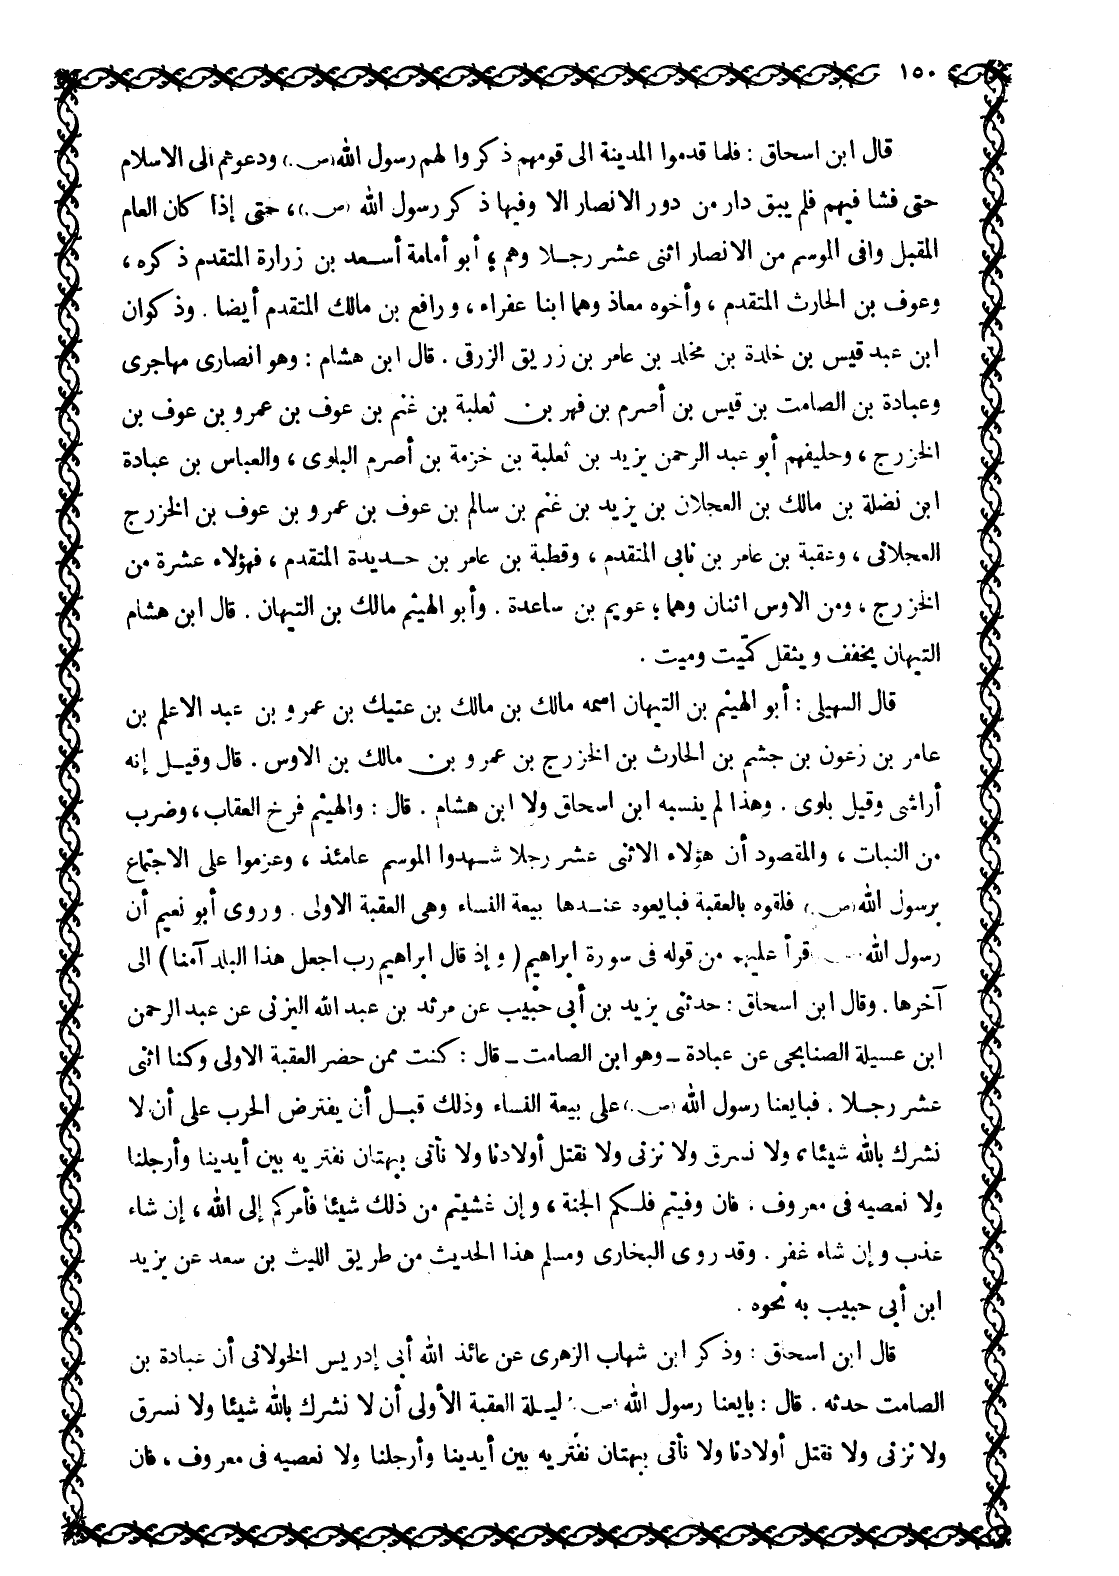 ١٥٠
قال ابن اسحاق : فلما قدموا المدينة الى قومهم ذكروا لهم رسول الله (ص.) ودعوهم الى الاسلام
حتى فشا فيهم فلم يبق دار من دور الانصار الا وفيها ذكر رسول الله (ص.) ، حتى إذا كان العام
المقبل وافى الموسم من الانصار اثنى عشر رجلا وهم ؛ أبو أمامة أسعد بن زرارة المتقدم ذكره ،
وعوف بن الحارث المتقدم ، وأخوه معاذ وهما ابنا عفراء ، ورافع بن مالك المتقدم أيضا . وذكوان
ابن عبد قيس بن خلدة بن مخلد بن عامر بن زريق الزرقى . قال ابن هشام : وهو انصارى مهاجرى
وعبادة بن الصامت بن قيس بن أصرم بن فهر بن ثعلبة بن غنم بن عوف بن عمرو بن عوف بن
الخزرج ، وحليفهم أبو عبد الرحمن يزيد بن ثعلبة بن خزمة بن أصرم البلوى ، والعباس بن عبادة
ابن نضلة بن مالك بن العجلان بن يزيد بن غنم بن سالم بن عوف بن عمرو بن عوف بن الخزرج
العجلانى ، وعقبة بن عامر بن نابى المتقدم ، وقطبة بن عامر بن حديدة المتقدم ، فهؤلاء عشرة من
الخزرج ، ومن الاوس اثنان وهما ؛ عويم بن ساعدة . وأبو الهيثم مالك بن التيهان . قال ابن هشام
التيهان يخفف ويثقل كميّت وميت .
قال السهيلى : أبو الهيثم بن التيهان اسمه مالك بن مالك بن عتيك بن عمرو بن عبد الاعلم بن
عامر بن زعون بن جشم بن الحارث بن الخزرج بن عمرو بن مالك بن الاوس . قال وقيل إنه
أراشى وقيل بلوى . وهذا لم ينسبه ابن اسحاق ولا ابن هشام . قال : والهيثم فرخ العقاب ، وضرب
من النبات ، والمقصود أن هؤلاء الاثنى عشر رجلا شهدوا الموسم عامئذ ، وعزموا على الاجتماع
برسول الله (ص.) فلقوه بالعقبة فبايعوه عندها بيعة النساء وهى العقبة الاولى . وروى أبو نعيم أن
رسول الله قرأ عليهم من قوله فى سورة ابراهيم ( وإذ قال ابراهيم رب اجعل هذا البلد آمنا ) الى
آخرها . وقال ابن اسحاق : حدثنى يزيد بن أبى حبيب عن مرثد بن عبد الله اليزنى عن عبد الرحمن
ابن عسيلة الصنابحى عن عبادة ــ وهو ابن الصامت ــ قال : كنت ممن حضر العقبة الاولى وكنا اثنى
عشر رجلا . فبايعنا رسول الله (ص.) على بيعة النساء وذلك قبل أن يفترض الحرب على أن لا
نشرك بالله شيئا ، ولا نسرق ولا نزنى ولا نقتل أولادنا ولا نأتى ببهتان نفتريه بين أيدينا وأرجلنا
ولا نعصيه فى معروف . فان وفيتم فلكم الجنة ، وإن غشيتم من ذلك شيئا فأمركم إلى الله ، إن شاء
عذب وإن شاء غفر . وقد روى البخارى ومسلم هذا الحديث من طريق الليث بن سعد عن يزيد
ابن أبى حبيب به نحوه .
قال ابن اسحاق : وذكر ابن شهاب الزهرى عن عائذ الله أبى إدريس الخولانى أن عبادة بن
الصامت حدثه . قال : بايعنا رسول الله (ص.) ليلة العقبة الأولى أن لا نشرك بالله شيئا ولا نسرق
ولا نزنى ولا نقتل أولادنا ولا نأتى ببهتان نفتريه بين أيدينا وأرجلنا ولا نعصيه فى معروف ، فان